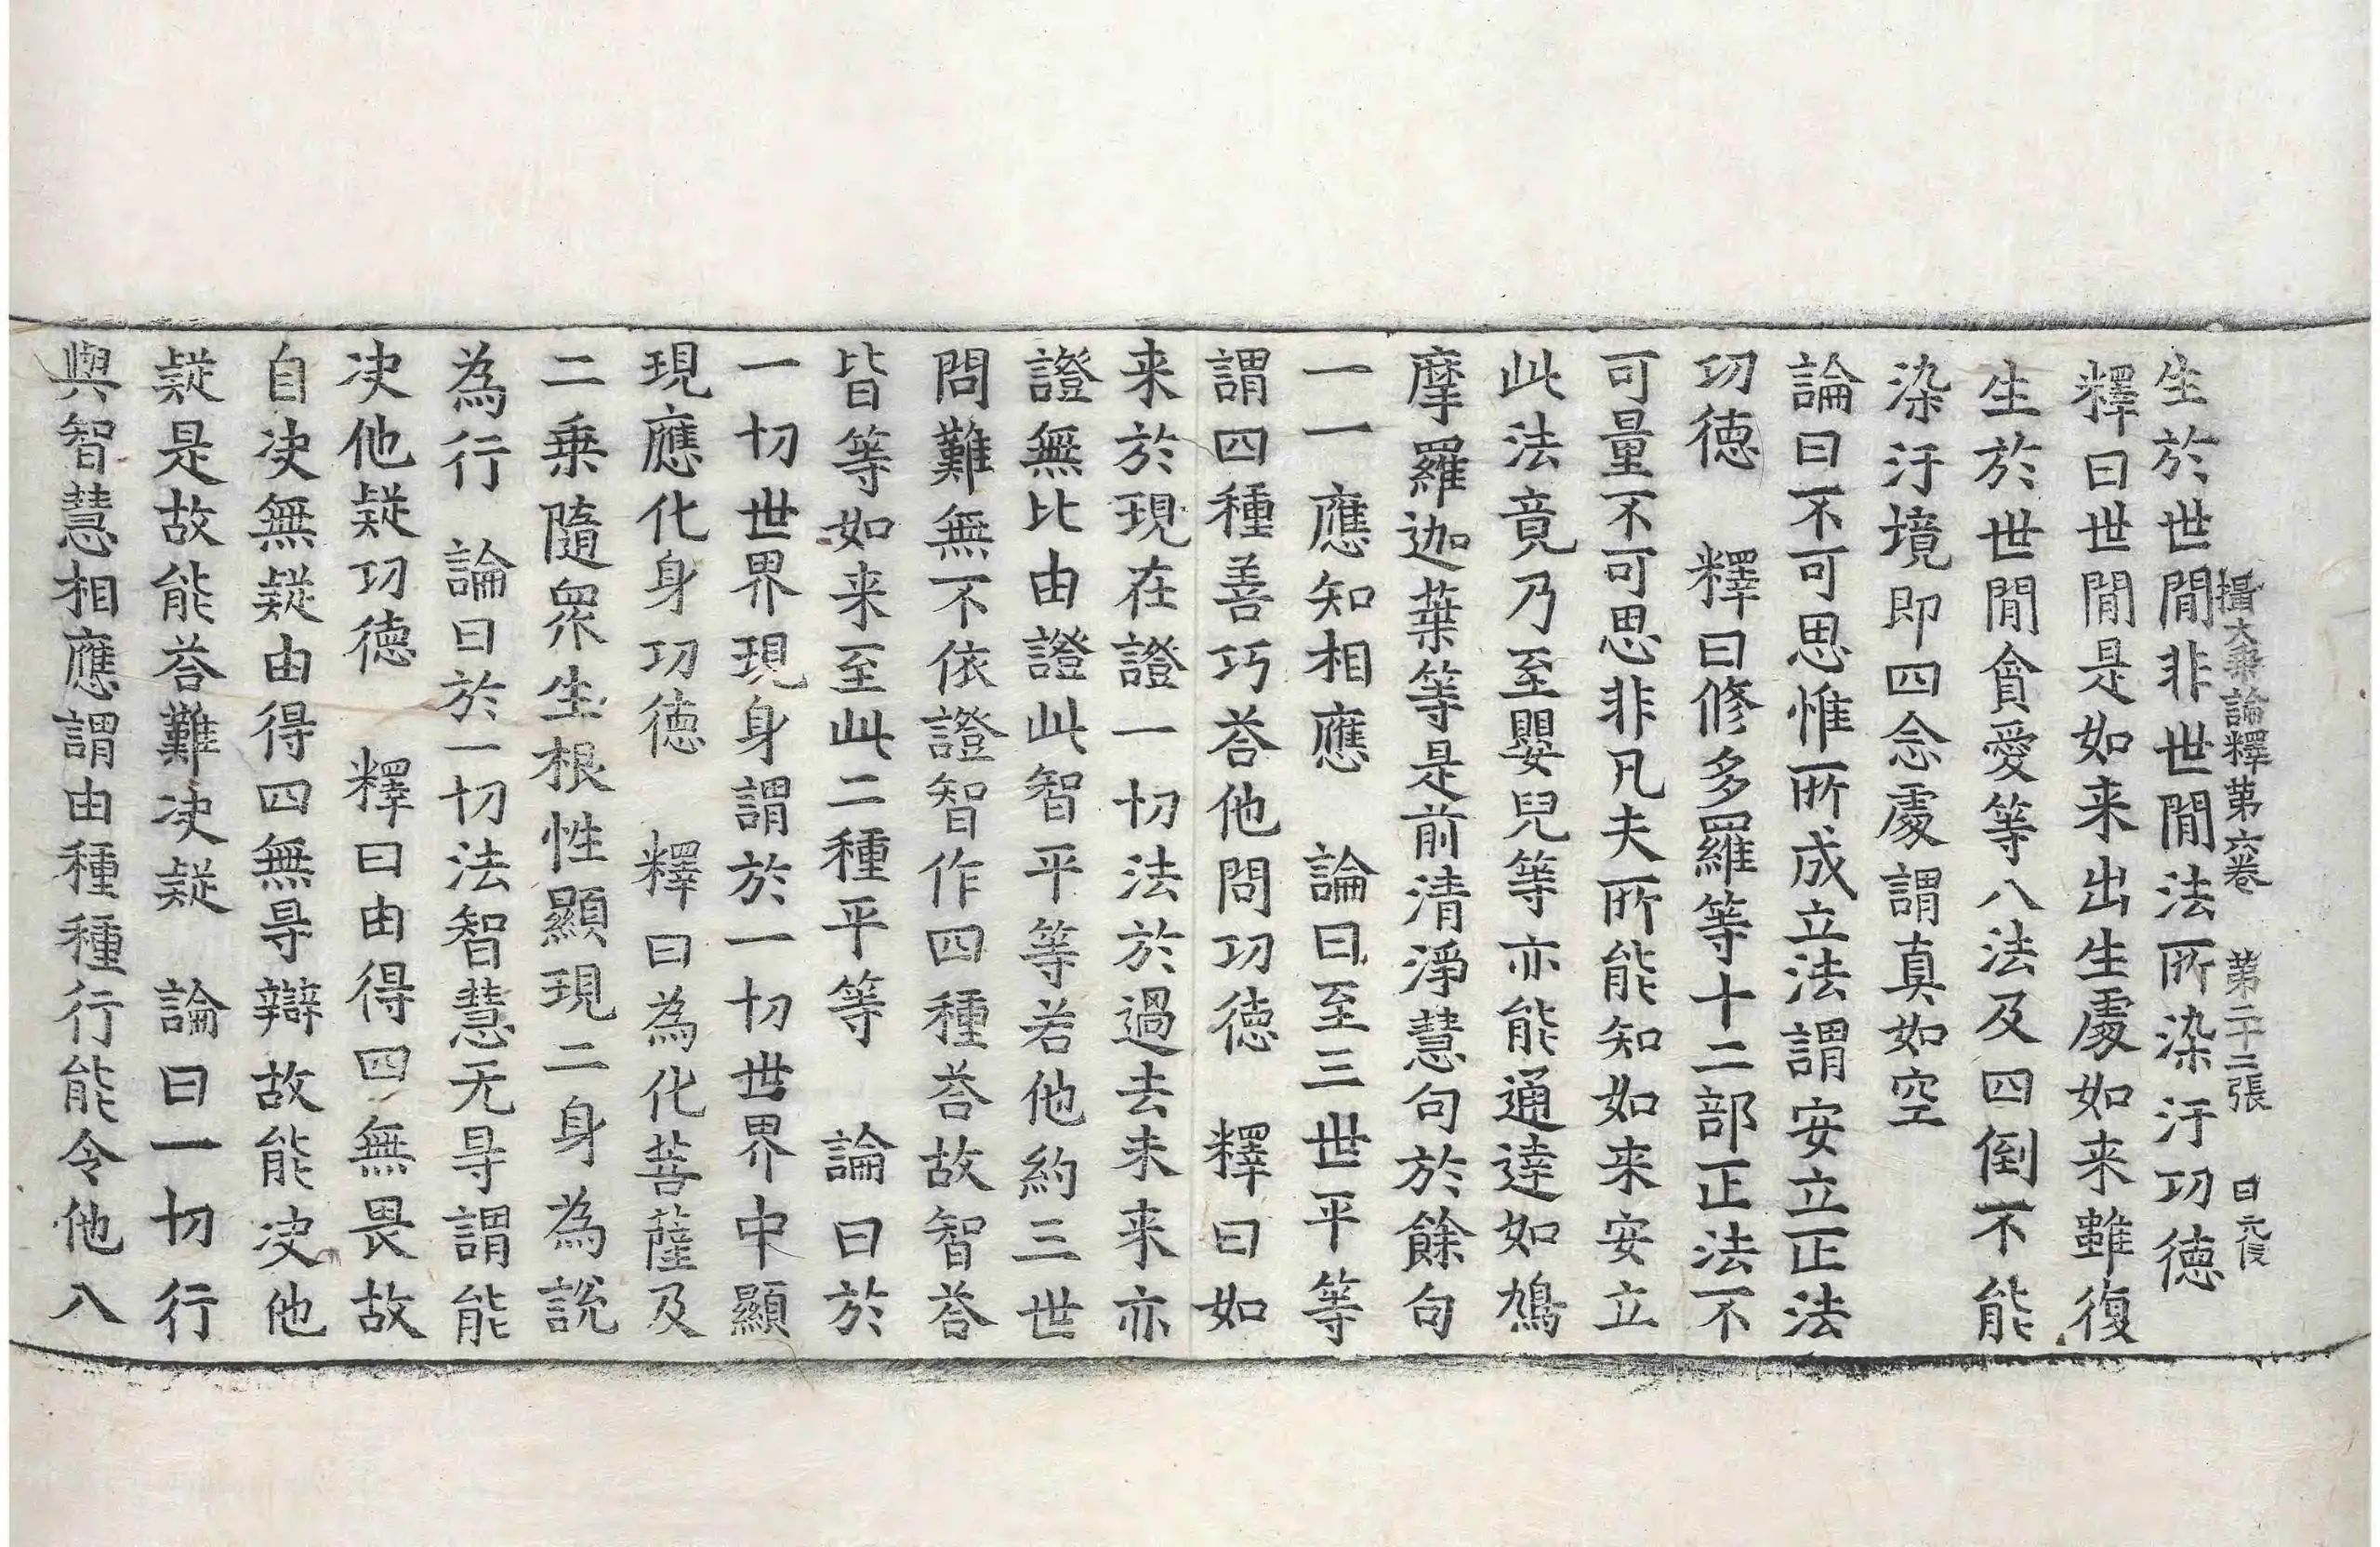 攝大乗論釋第六卷　第二十二張　日
生於世閒非世閒法所染汙功徳
釋曰世閒是如来出生處如来雖復
生於世閒貪愛等八法及四倒不能
染汙境即四念處謂真如空
論曰不可思惟所成立法謂安立正法
功徳　釋曰修多羅等十二部正法不
可量不可思非凡夫所能知如来安立
此法竟乃至嬰兒等亦能通達如鳩
摩羅迦葉等是前清淨慧句於餘句
一一應知相應　論曰至三世平等
謂四種善巧荅他問功徳　釋曰如
来於現在證一切法於過去未来亦
證無比由證此智平等若他約三世
問難無不依證智作四種荅故智荅
皆等如来至此二種平等　論曰於
一切世界現身謂於一切世界中顯
現應化身功徳　釋曰為化菩薩及
二乗隨衆生根性顯現二身為說
為行　論曰於一切法智慧无㝵謂能
决他疑功徳　釋曰由得四無畏故
自决無疑由得四無㝵辯故能决他
疑是故能荅難决疑　論曰一切行
與智慧相應謂由種種行能令他八